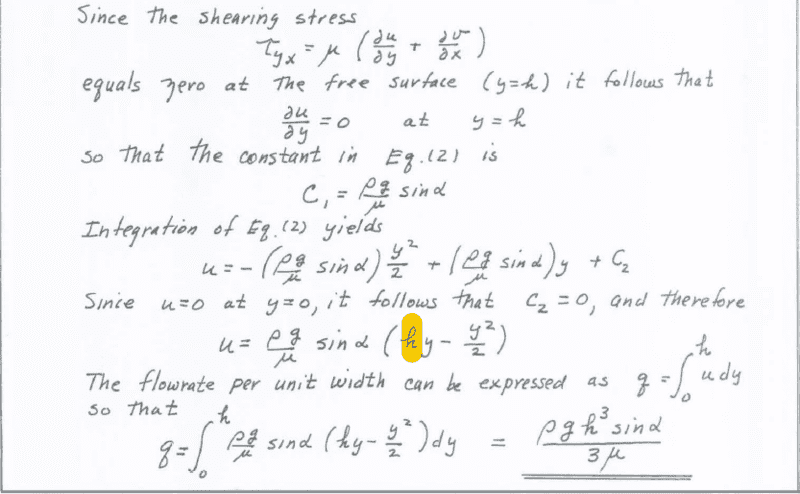 Since the shearing stress
τyx = μ (∂u/∂y + ∂v/∂x)
equals zero at the free surface (y=h) it follows that
∂u/∂y = 0 at y = h
so that the constant in Eq.(2) is
C₁ = ρg/μ sin α
Integration of Eq.(2) yields
u = -(ρg/μ sin α) y²/2 + (ρg/μ sin α)y + C₂
Since u=0 at y=0, it follows that C₂ = 0, and therefore
u = ρg/μ sin α (hy - y²/2)
The flowrate per unit width can be expressed as q = ∫₀ʰ u dy
so that
q = ∫₀ʰ ρg/μ sin α (hy - y²/2) dy = ρgh³ sin α / 3μ